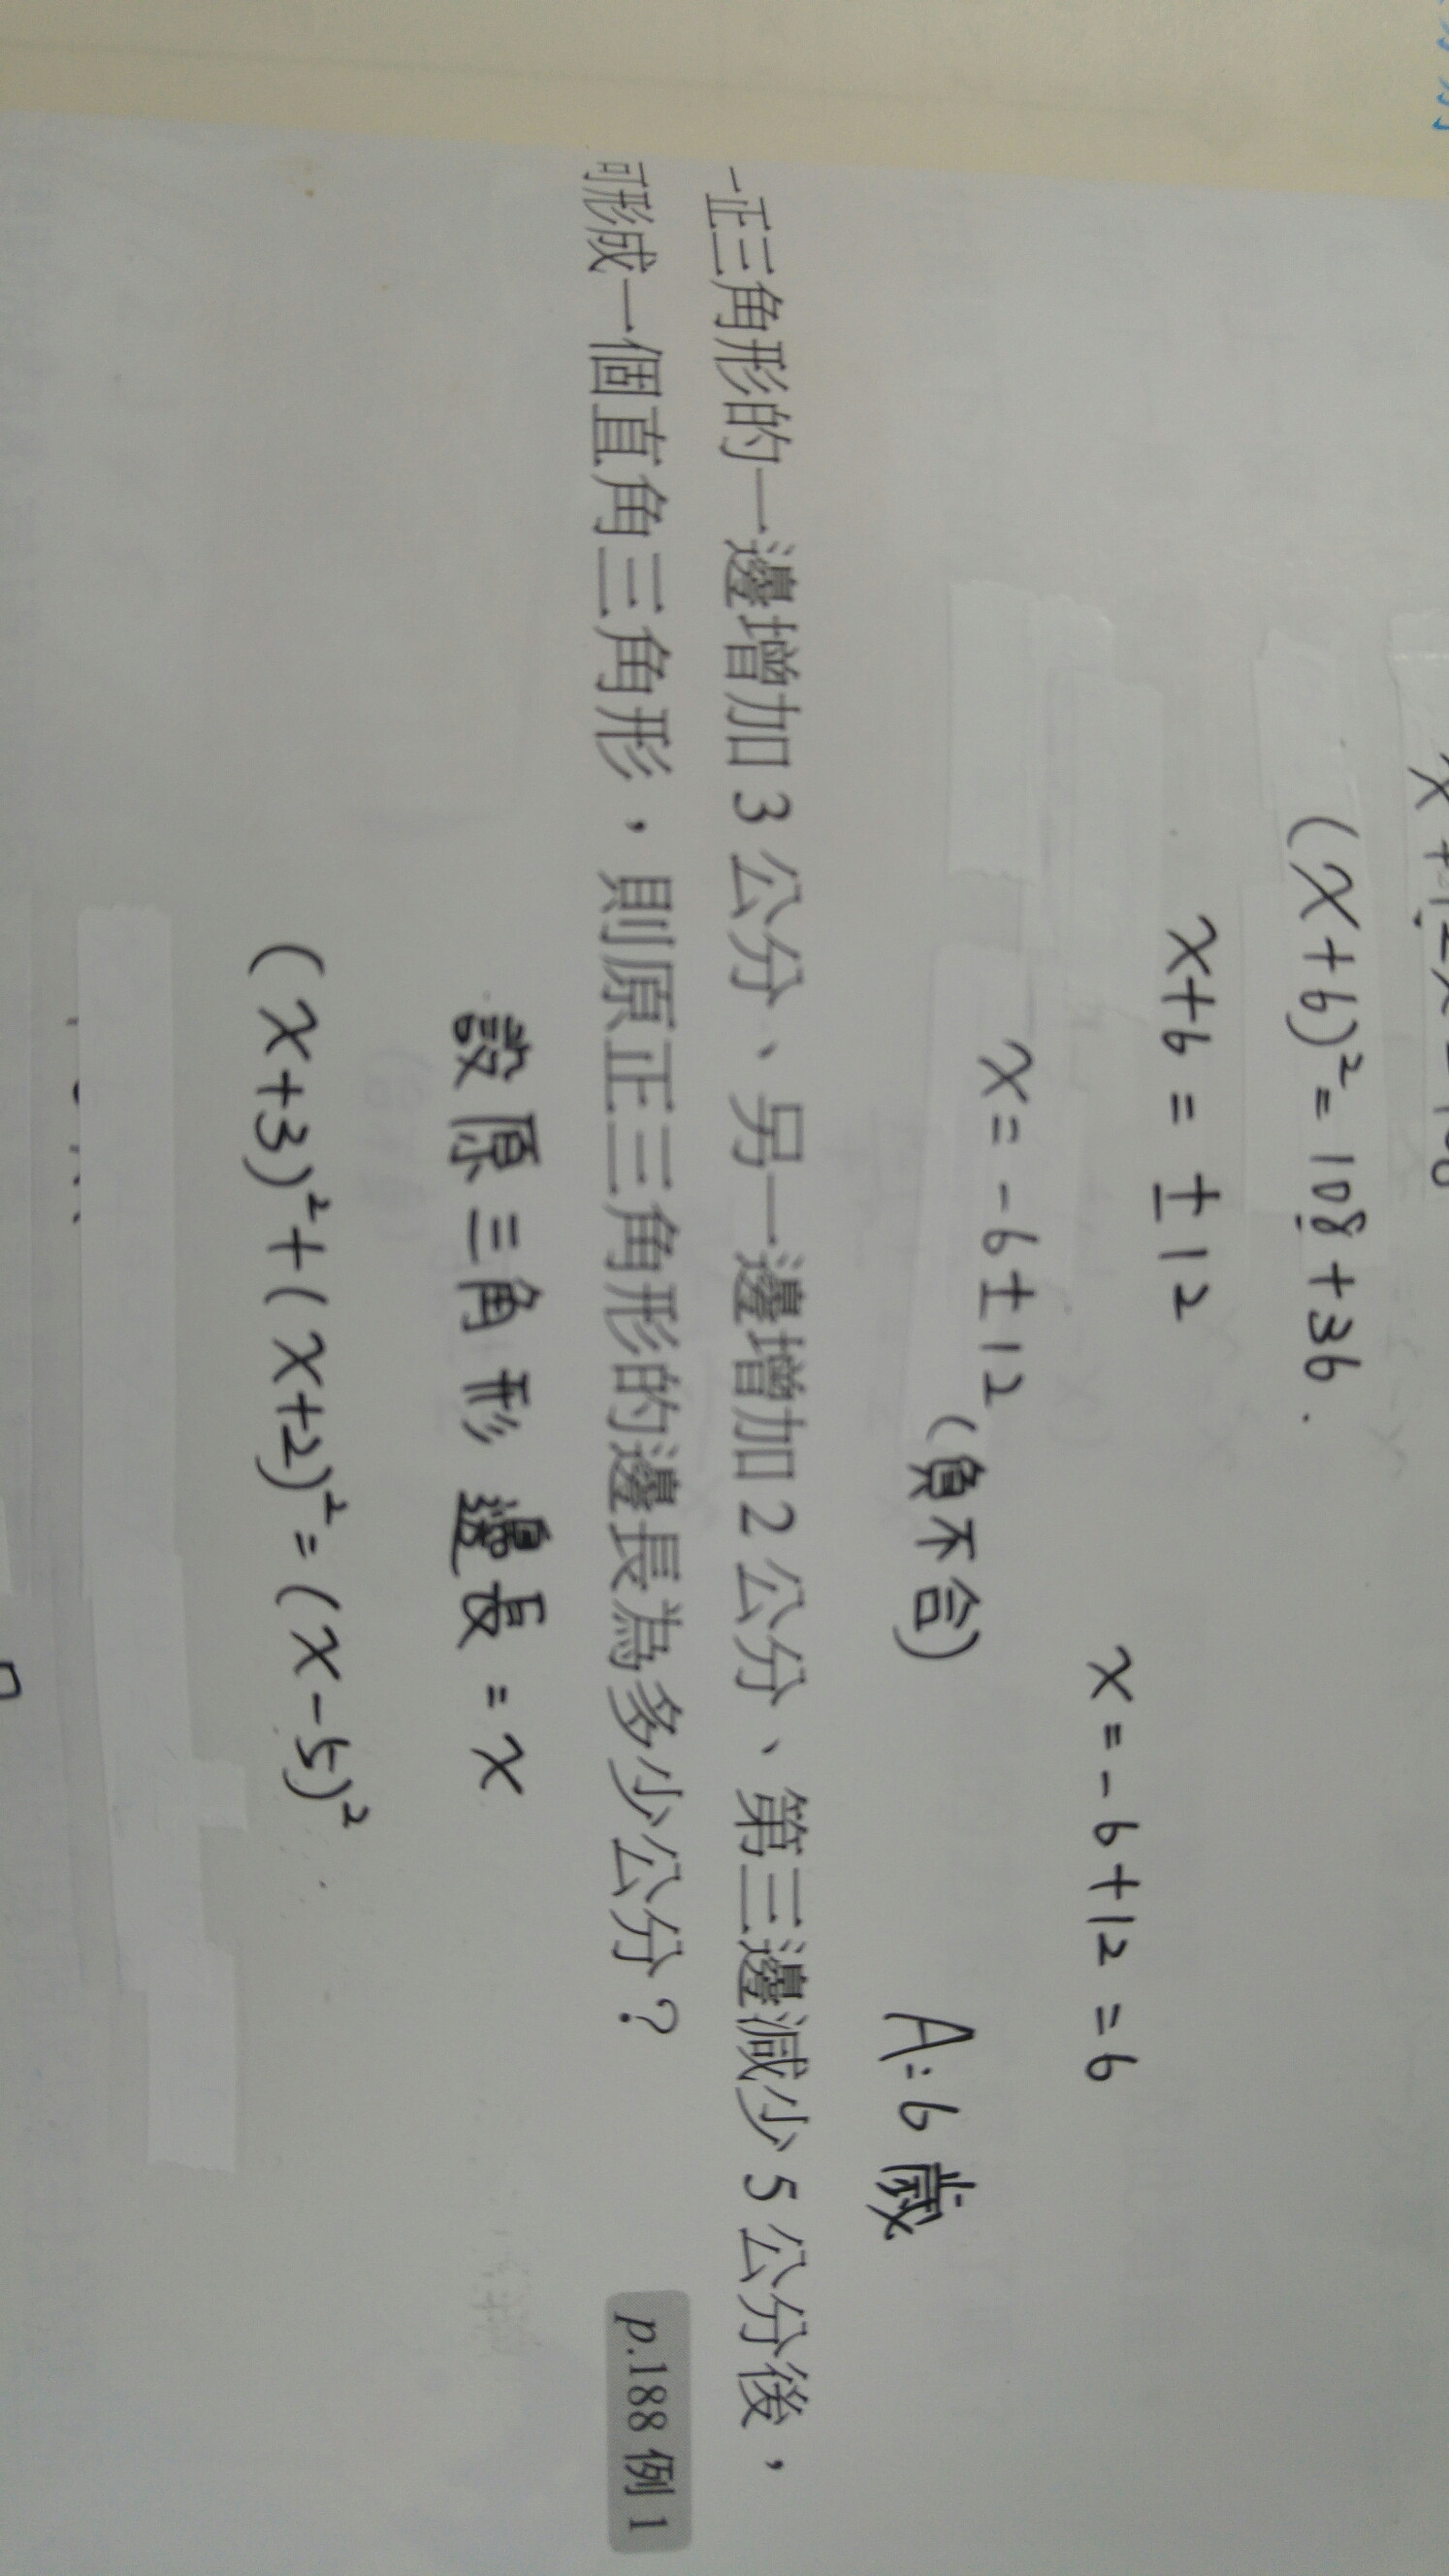 (x+6)²=108+36
x+6=±12
x=-6+12=6
x=-6±12(負不合)
A:6歲
一正三角形的一邊增加3公分、另一邊增加2公分、第三邊減少5公分後，
可形成一個直角三角形，則原正三角形的邊長為多少公分？ p.188例1
設原三角形邊長=x
(x+3)²+(x+2)²=(x-5)²